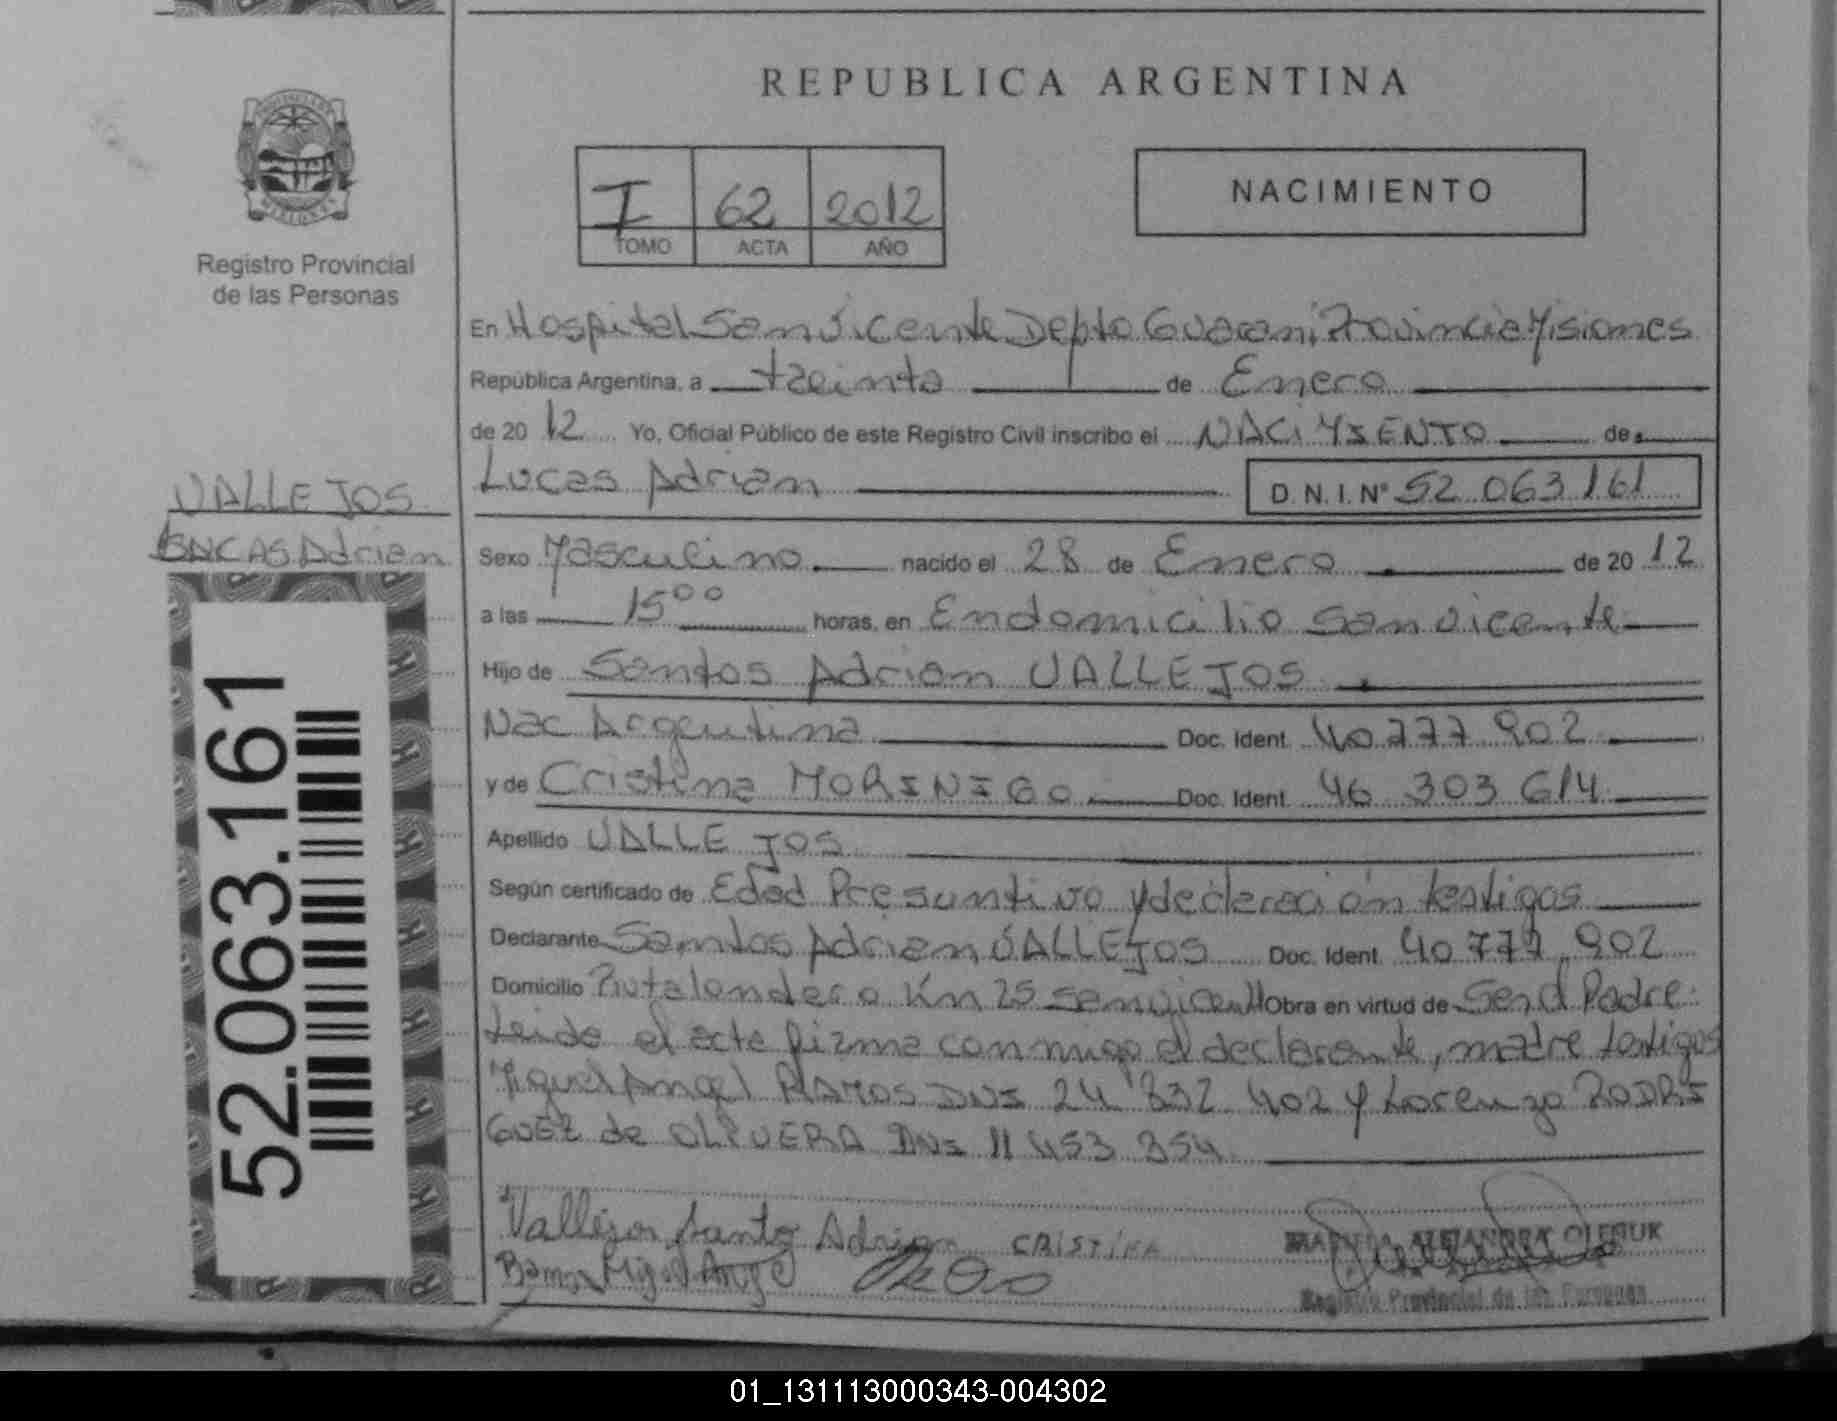 REPUBLICA ARGENTINA
I 62 2012
TOMO ACTA AÑO
NACIMIENTO
Registro Provincial
de las Personas
En Hospital San Vicente Depto Guarani Provincia Misiones
República Argentina, a treinta de Enero
de 20 12 Yo, Oficial Público de este Registro Civil inscribo el NACIMIENTO de
Lucas Adrian D.N.I.Nº 52 063 161
VALLEJOS
LUCAS Adrian
Sexo Masculino nacido el 28 de Enero de 20 12
a las 15⁰⁰ horas, en En domicilio San Vicente
Hijo de Santos Adrian VALLEJOS
Nac Argentina Doc. Ident. 40 777 902
y de Cristina MORINIGO Doc. Ident. 46 303 614
Apellido VALLEJOS
Según certificado de Edad Presuntivo y declaración testigos
Declarante Santos Adrian VALLEJOS Doc. Ident. 40 777 902
Domicilio Km 25 San Vicente Obra en virtud de Ser el Padre
Leida el acta firma conmigo el declarante, madre testigos
Miguel Angel RAMOS DNI 24 832 402 y Lorenzo RODRI
GUEZ de OLIVERA DNI 11 453 354
52.063.161
Vallejos Santo Adrian CRISTINA
Ramos Miguel Angel
ALEJANDRA OLEÑUK
Registro Provincial de las Personas
01_131113000343-004302